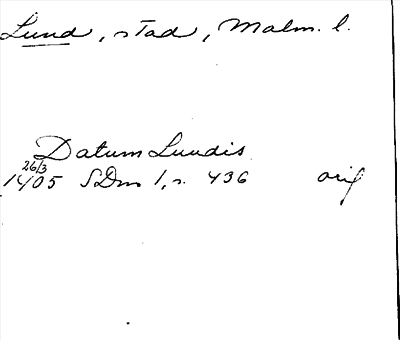 Lund, stad, Malm. l.
Datum Lundis
26/3
1405 SDm 1, s. 436 orig